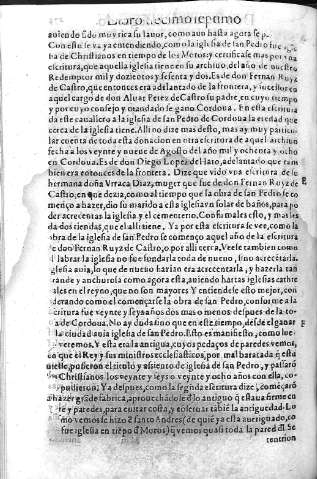 Libro decimo septimo
auiendo sido muy rica su lauor, como aun hasta agora se p
Con esto se va ya entendiendo, como la iglesia de san Pedro fue
ba de Christianos en tiempo de los Moros, y certificase mas por vna
escritura, que aquella iglesia tiene en su archiuo, del año de nuestro
Redemptor mil y dozientos y sesenta y dos. Es de don Fernan Ruyz
de Castro, que entonces era adelantado de la frontera, y sucessor en
aquel cargo de don Aluar Perez de Castro su padre, en cuyo tiempo
y por cuyo consejo y mandado se gano Cordoua. En esta escritura
da este cauallero a la iglesia de san Pedro de Cordoua la
cerca de la iglesia tiene. Alli no dize mas desto, mas ay muy particu
lar cuenta de toda esta donacion en otra escritura de aquel archiuo
fecha a los veynte y nueue de Agosto del año mil y ochenta y ocho
en Cordoua. Es de don Diego Lopez de Haro, adelantado que tam
bien era entonces de la frontera. Dize que vido vna escritura de su
hermana doña Vrraca Diaz, muger que fue de don Fernan Ruyz de
Castro, en que dezia, como al tiempo que la obra de san Pedro se co
menço a hazer, dio su marido a esta iglesia vn solar de baños, para po
der acrecentar la iglesia y el cementerio. Confirmales esto, y mas les
da dos tiendas, que el alli tiene. Ya por esta escritura se vee, como la
obra de la iglesia de san Pedro se començo aquel año de la escritura
de don Fernan Ruyz de Castro, o por alli cerca. Veese tambien como
labrar la iglesia no fue fundarla toda de nueuo, sino acrecentarla.
Iglesia auia, lo que de nueuo harian era acrecentarla, y hazerla tan
grande y anchurosa como agora esta, auiendo hartas iglesias
ales en el reyno, que no son mayores Y entiendese esto mejor, con
siderando como el començarse la obra de san Pedro, conforme a la
escritura fue veynte y seys años dos mas o menos despues de la to
da de Cordoua. No ay duda sino que en este tiempo, desde el ganar
la ciudad auia iglesia de san Pedro. Esto es manifiesto, como lue
veremos. Y esta era la antigua, cuyos pedaços de paredes vemos,
en que el Rey y sus ministros ecclesiasticos, por mal baratada esta
uiesse, pusieron el titulo y assiento de iglesia de san Pedro, y passarō
Christianos los veynte y seys o veynte y ocho años con ella, co
pudieron. Ya despues, como la segūda escritura dize, començarō
a hazer grāde fabrica, aprouechādose d̄ lo antiguo q̄ estaua firme en
te y paredes, para euitar costa, y conseruar tābiē la antiguedad. Lo
mo vemos se hizo ē santo Andres (de quiē ya esta aueriguado, co
fue iglesia en tiēpo d̄ Moros) q̄ vemos quasi toda la pared d̄l Se
tentrion